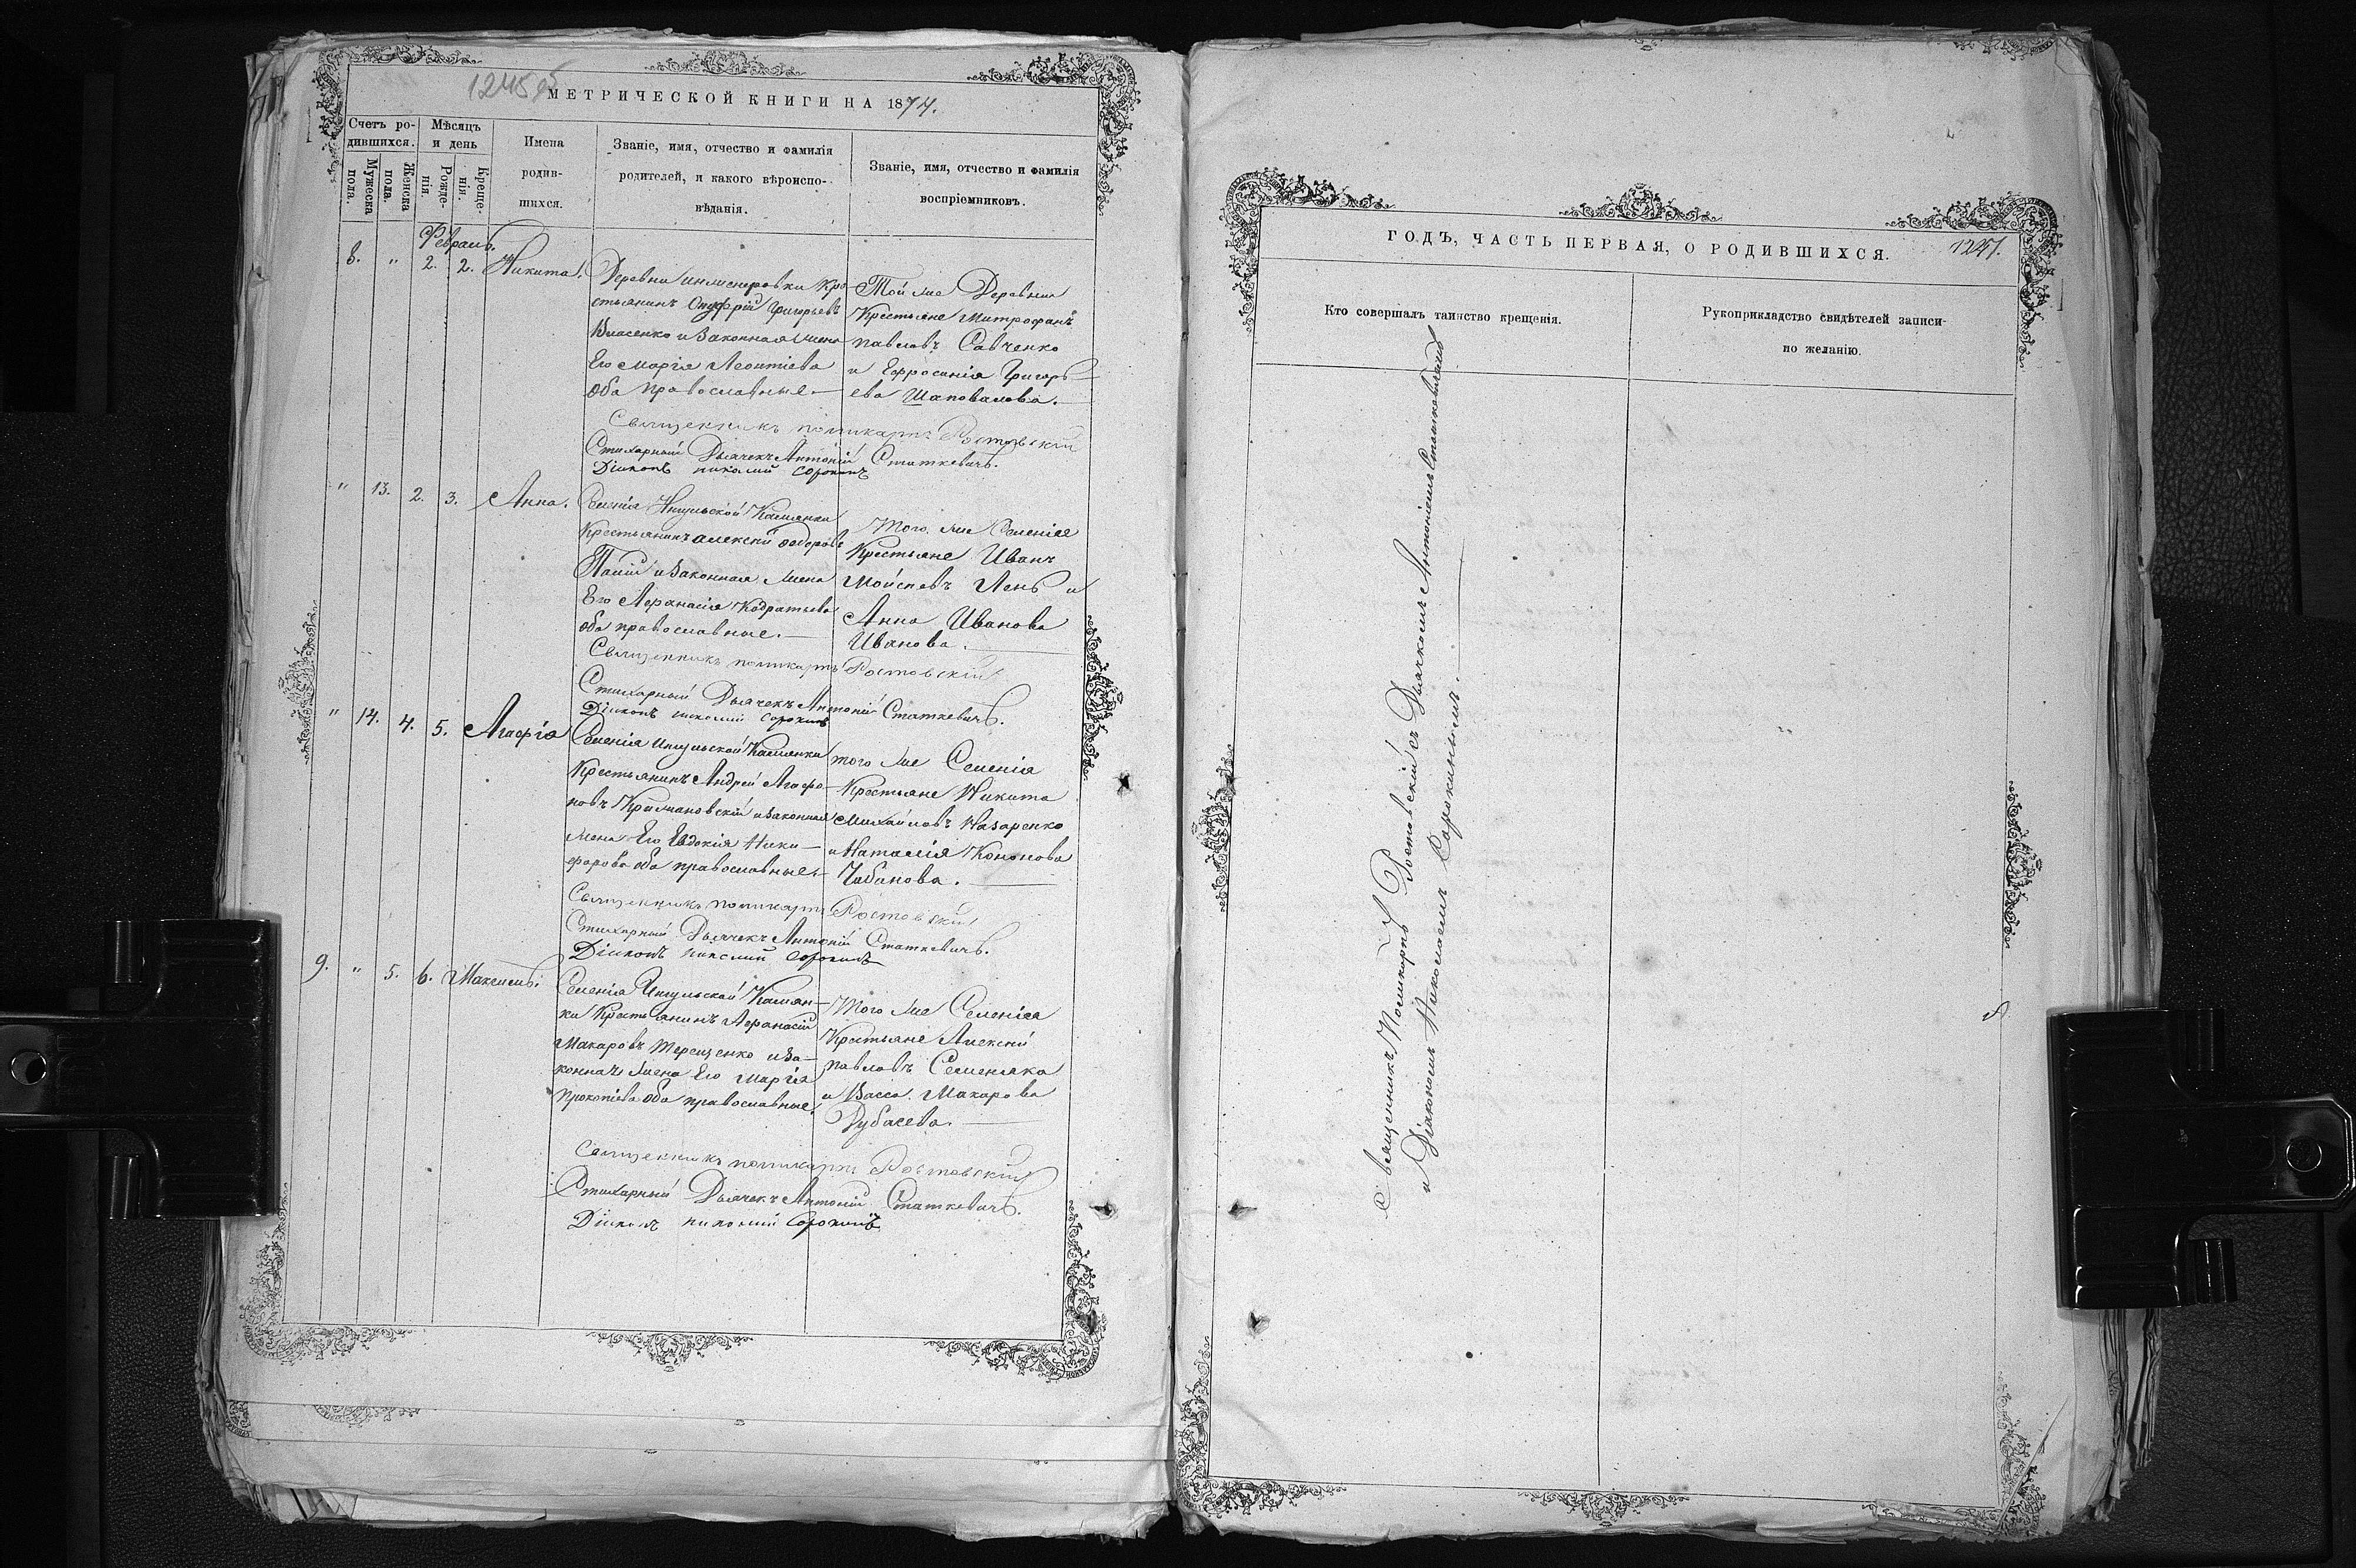 1245 об
МЕТРИЧЕСКОЙ КНИГИ НА 1874.
Счетъ ро-
дившихся.
Мѣсяцъ
и день
Мужеска
пола.
Женска
пола.
Рожде-
нія.
Креще-
нія.
Имена
родив-
шихся.
Званіе, имя, отчество и фамилія
родителей, и какого вѣроиспо-
вѣданія.
Званіе, имя, отчество и фамилія
воспріемниковъ.
Февраль.
8. " 2. 2. Никита.
Деревни Инженеровки Кре
стьянинъ Онуфрій Григорьевъ
Власенко и Законная жена
Его Марія Леонтіева
оба православные.—
Той же Деревни
Крестьяне Митрофанъ
Павловъ Савченко
и Ефросинія Григорь-
ева Шаповалова.—
Священникъ Поликарпъ Ростовскій
Стихарный Дьячекъ Антоній Статкевичъ.
Діаконъ Николай Сорокинъ
" 13. 2. 3. Анна.
Селенія Ингульской Каменки
Крестьянинъ Алексѣй Федоровъ
и Законная жена
Его Афанасія Кодратьева
оба православные.—
Того же Селенія
Крестьяне Иванъ
Мойсеевъ Лень и
Анна Иванова
Иванова.—
Священникъ Поликарпъ Ростовскій
Стихарный Дьячекъ Антоній Статкевичъ.
Діаконъ Николай Сорокинъ
" 14. 4. 5. Агафія
Селенія Ингульской Каменки
Крестьянинъ Андрей Агафо-
новъ Крижановскій и Законная
жена Его Евдокія Ники-
форова оба православные.—
того же Селенія
Крестьяне Никита
Михайловъ Назаренко
и Наталія Кононова
Чабанова.—
Священникъ Поликарпъ Ростовскій
Стихарный Дьячекъ Антоній Статкевичъ.
Діаконъ Николай Сорокинъ
9. " 5. 6. Максимъ.
Селенія Ингульской Камян-
ки Крестьянинъ Афанасій
Макаровъ Терещенко и За-
конная жена Его Марія
Прокопіева оба православные.
Того же Селенія
Крестьяне Алексѣй
Павловъ Семеняка
и Васса Макарова
Священникъ Поликарпъ Ростовскій
Стихарный Дьячекъ Антоній Статкевичъ.
Діаконъ Николай Сорокинъ
ГОДЪ, ЧАСТЬ ПЕРВАЯ, О РОДИВШИХСЯ.
Кто совершалъ таинство крещенія.
Рукоприкладство свидѣтелей записи
по желанію.
Священникъ Поликарпъ Ростовскій съ Дьячкомъ Антоніемъ Статкевичемъ
и Діакономъ Николаемъ Сорокинымъ.—